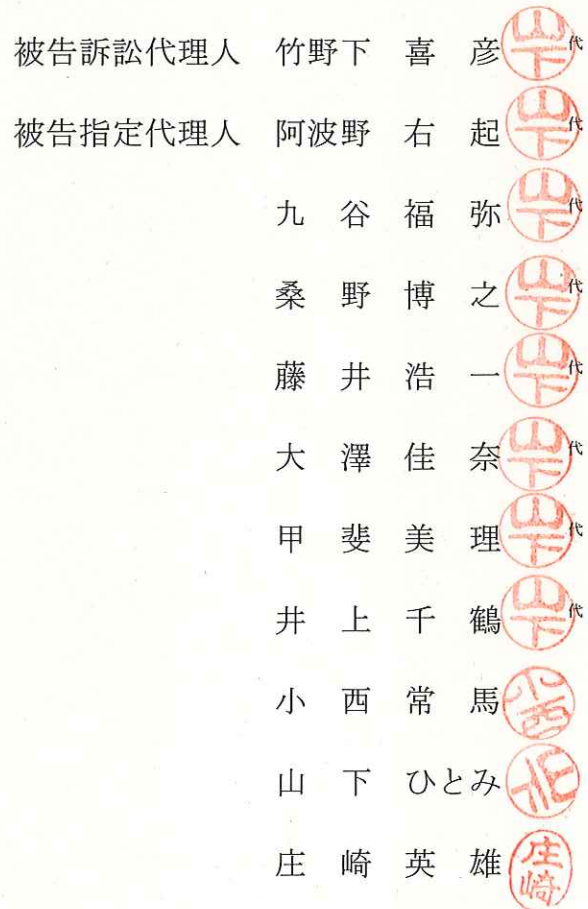 被告訴訟代理人 竹野下 喜 彦 山下 代
被告指定代理人 阿波野 右 起 山下 代
九 谷 福 弥 山下 代
桑 野 博 之 山下 代
藤 井 浩 一 山下 代
大 澤 佳 奈 山下 代
甲 斐 美 理 山下 代
井 上 千 鶴 山下 代
小 西 常 馬 小西
山 下 ひとみ 山下
庄 崎 英 雄 庄崎